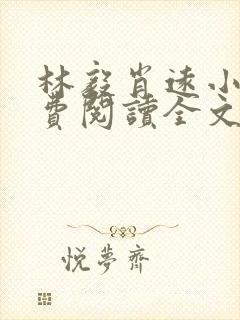 林毅肖遠小
費閱讀全文
悅夢齋